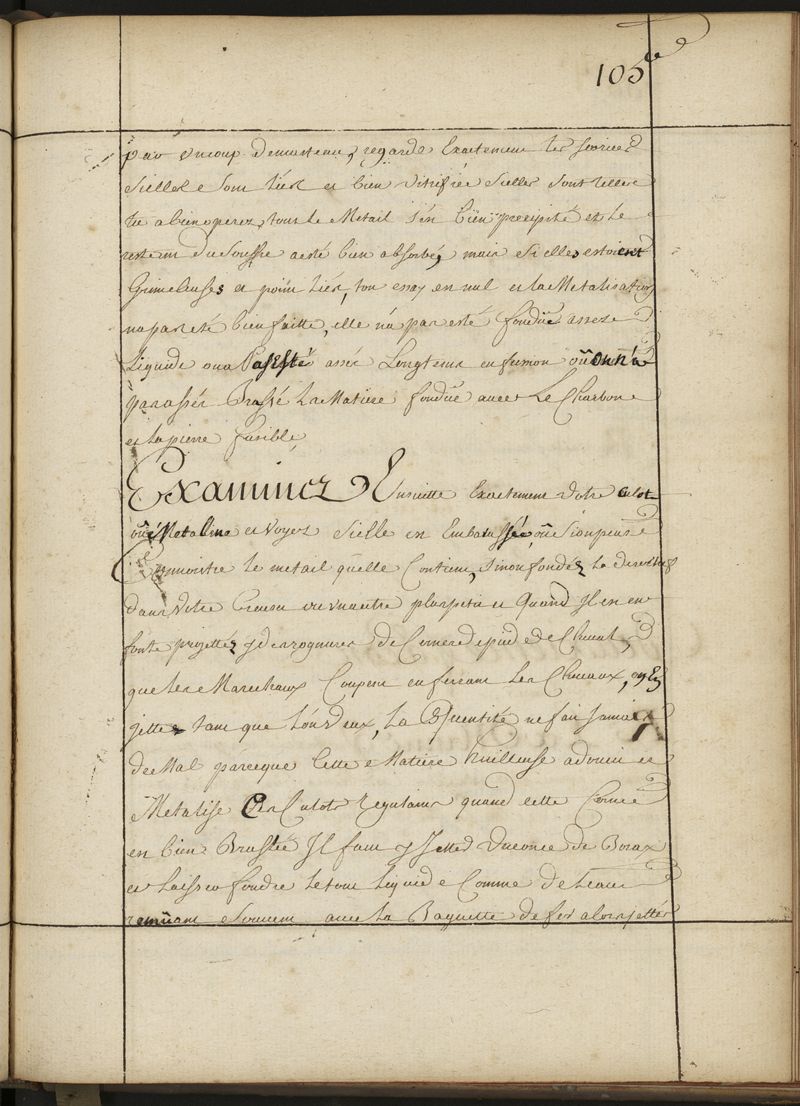 105
par un coup de marteau, regarde Exactement les scories
Si elles sont lies et bien vitrifiée Si elles sont telles
tu a bien operez, tout le Metail s'en bien precipité et le
restant du Souffre a esté bien absorbé, mais Si elles estoient
Grimeleuses et point lies, ton essay en nul et la Metalisation
na pas eté bien faitte, elle n'a pas esté fondüe assese
Liquide ou a Pas Esté assés Longtems en fusion oü on n'a
pas assés Brassé La Matiere fondüe avec Le Charbon
et la pierre fusible,
Examinez Ensuitte Exactement votre culot
oü Metaline et voyes Si elle en Embasssée, oü Si on peut
Connoistre le metail quelle Contien, Sinon fondéz le
dans votre Creuset ou un autre plus petit et Quand Il en en
fonte projettéz y des rognures de Corne de pied de Cheval,
que les Marechaux Coupent en ferrant les Chevaux,
jettez tant que l'on veux, La Quentité ne fait Jamais
de Mal parceque Cette Matiere huilleuse adouci et
Metalise Ces Culots regulains quand cette Corne
en bien Bruslée Il faut y Jetter Une once de Borax
et Laisser fondre le tout Liquide Comme de L'eau
remüant Souvent avec la Baguette de fer alors jettés